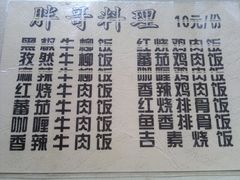 胖哥料理 10元/份
黑椒牛柳饭 番茄鸡肉饭
孜然牛柳饭 咖喱鸡肉饭
牛肉饭 香辣鸡肉饭
红烧牛肉饭 红烧鸡肉饭
番茄牛肉饭 红烧排骨饭
咖喱牛肉饭 鱼香排骨饭
香辣牛肉饭 吉素烧饭